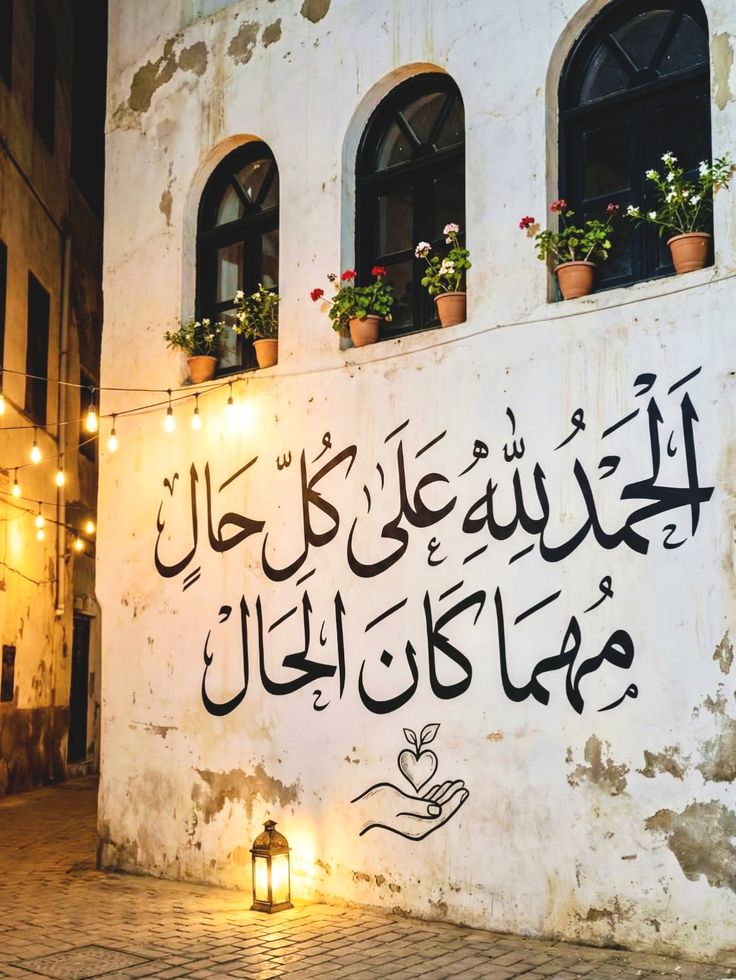 الْحَمْدُ لِلَّهِ عَلَى كُلِّ حَالٍ
مُهِمَا كَانَ الْحَال